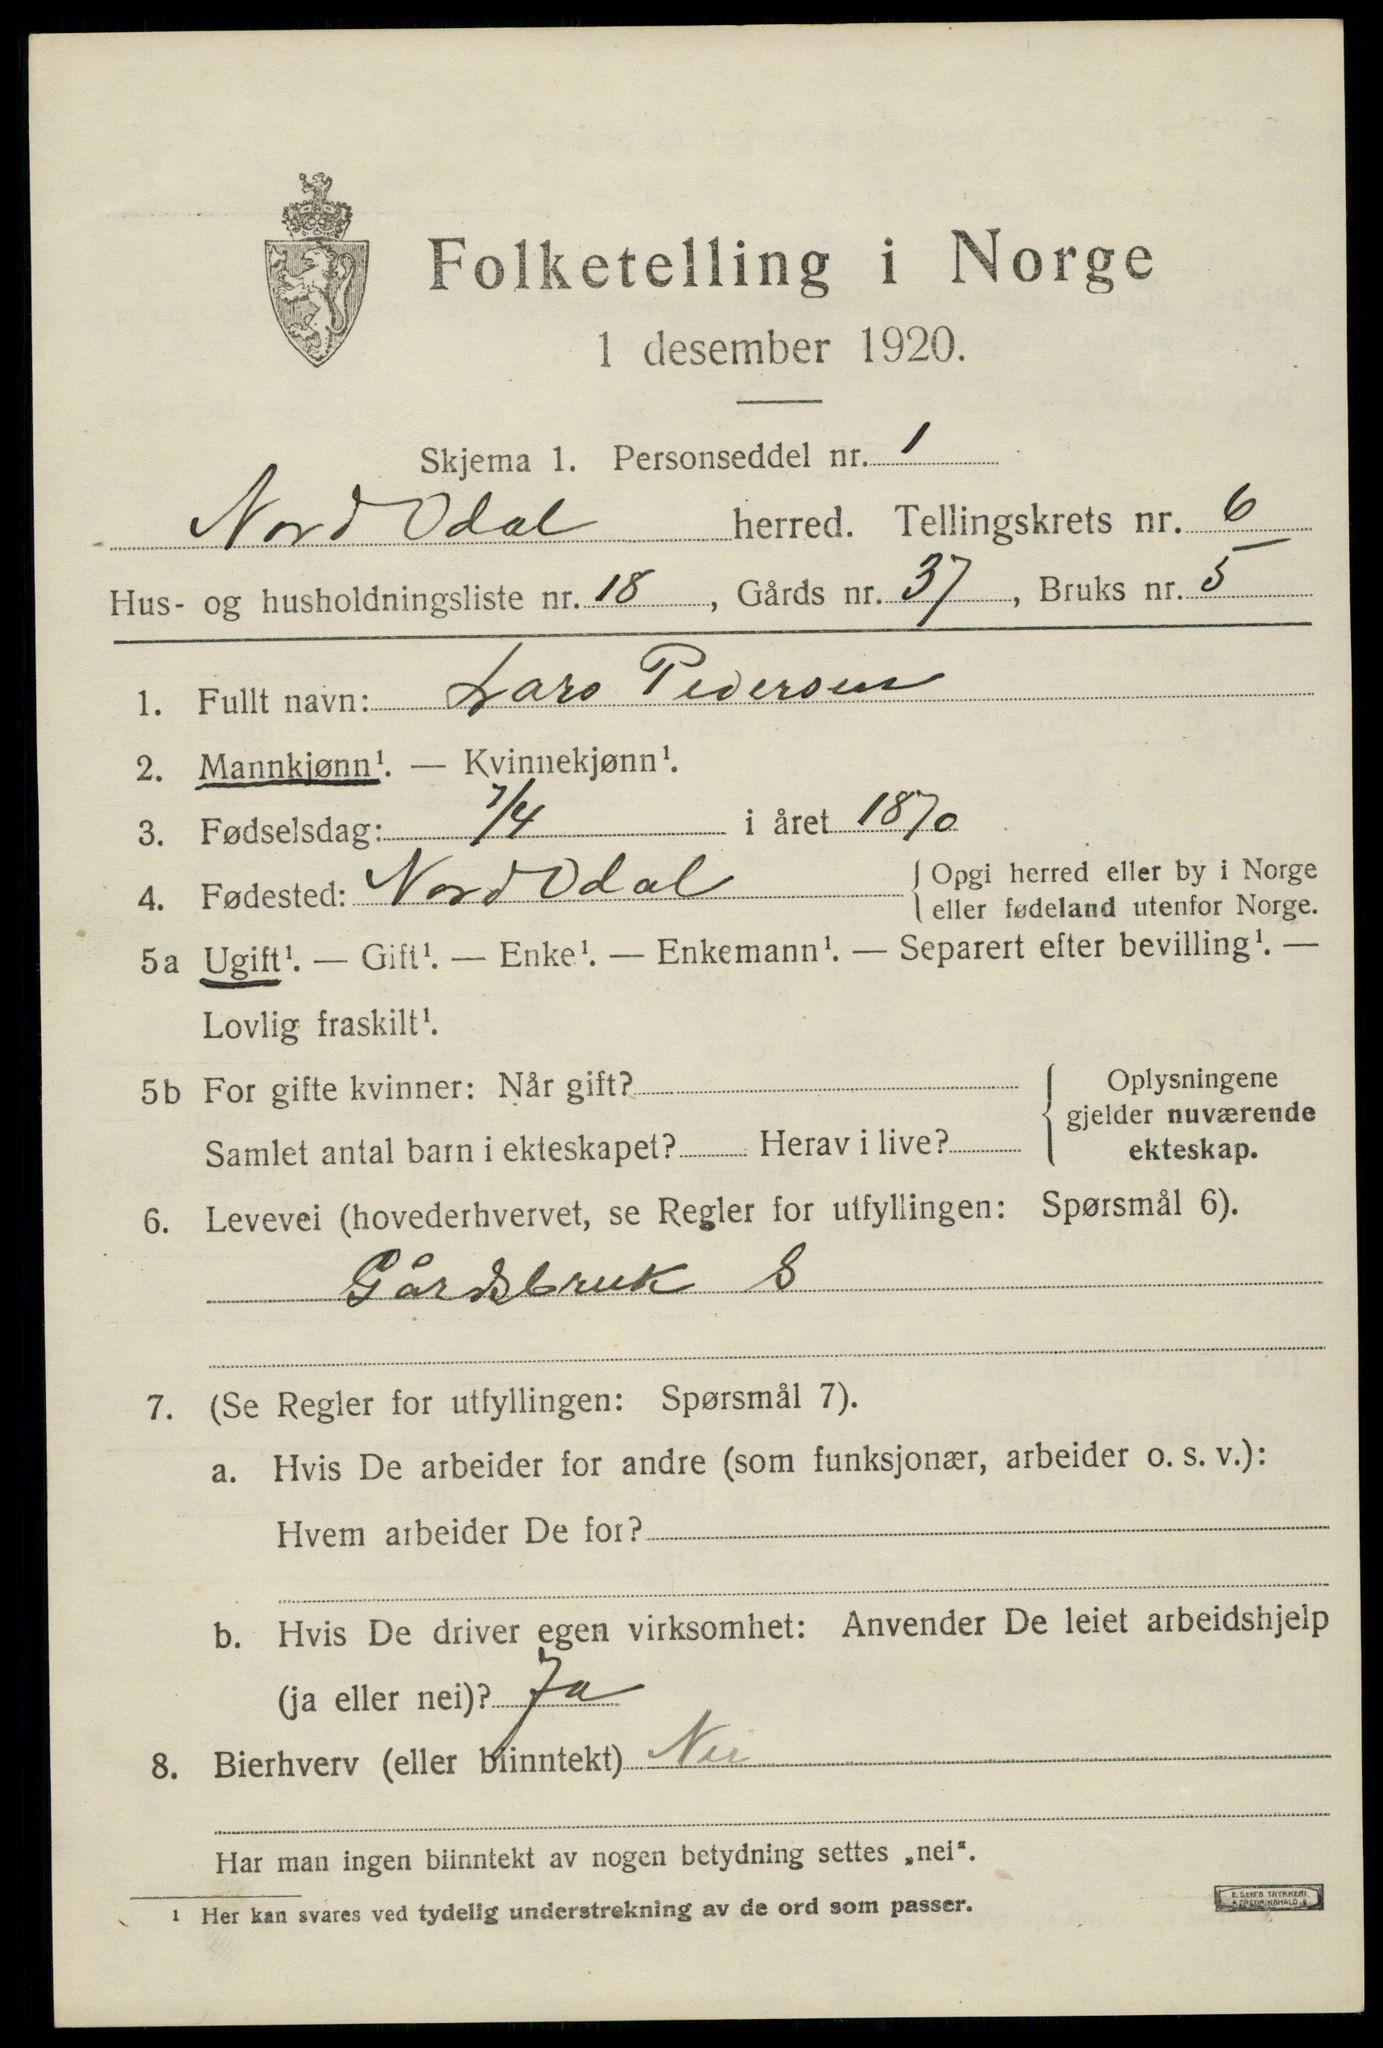 Folketelling i Norge
1 desember 1920.
Skjema 1. Personseddel nr. 1
Nord Odal herred. Tellingskrets nr. 6
Hus- og husholdningsliste nr. 18, Gårds nr. 37, Bruks nr. 5
1. Fullt navn: Lars Pedersen
2. Mannkjønn¹. — Kvinnekjønn¹.
3. Fødselsdag: 7/4 i året 1870
4. Fødested: Nord Odal { Opgi herred eller by i Norge
eller fødeland utenfor Norge.
5a Ugift¹. — Gift¹. — Enke¹. — Enkemann¹. — Separert efter bevilling¹. —
Lovlig fraskilt¹.
5b For gifte kvinner: Når gift?
Samlet antal barn i ekteskapet? Herav i live?
Oplysningene
gjelder nuværende
ekteskap.
6. Levevei (hovederhvervet, se Regler for utfyllingen: Spørsmål 6).
Gårdsbruk S
7. (Se Regler for utfyllingen: Spørsmål 7).
a. Hvis De arbeider for andre (som funksjonær, arbeider o. s. v.):
Hvem arbeider De for?
b. Hvis De driver egen virksomhet: Anvender De leiet arbeidshjelp
(ja eller nei)? Ja
8. Bierhverv (eller biinntekt) Nei
Har man ingen biinntekt av nogen betydning settes „nei“.
¹ Her kan svares ved tydelig understrekning av de ord som passer.
E. SEM'S TRYKKERI
FREDRIKSHALD